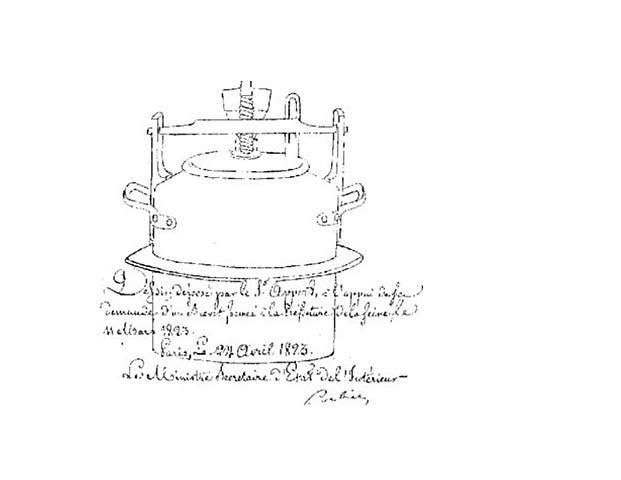 Dessin, Déposé par le Sr. Appert, à l'appui de sa
demande d'un Brevet formée à la Préfecture de la Seine, le
11 Mars 1823.
Paris, Le 24 Avril 1823.
Le Ministre Secrétaire d'Etat de l'Intérieur